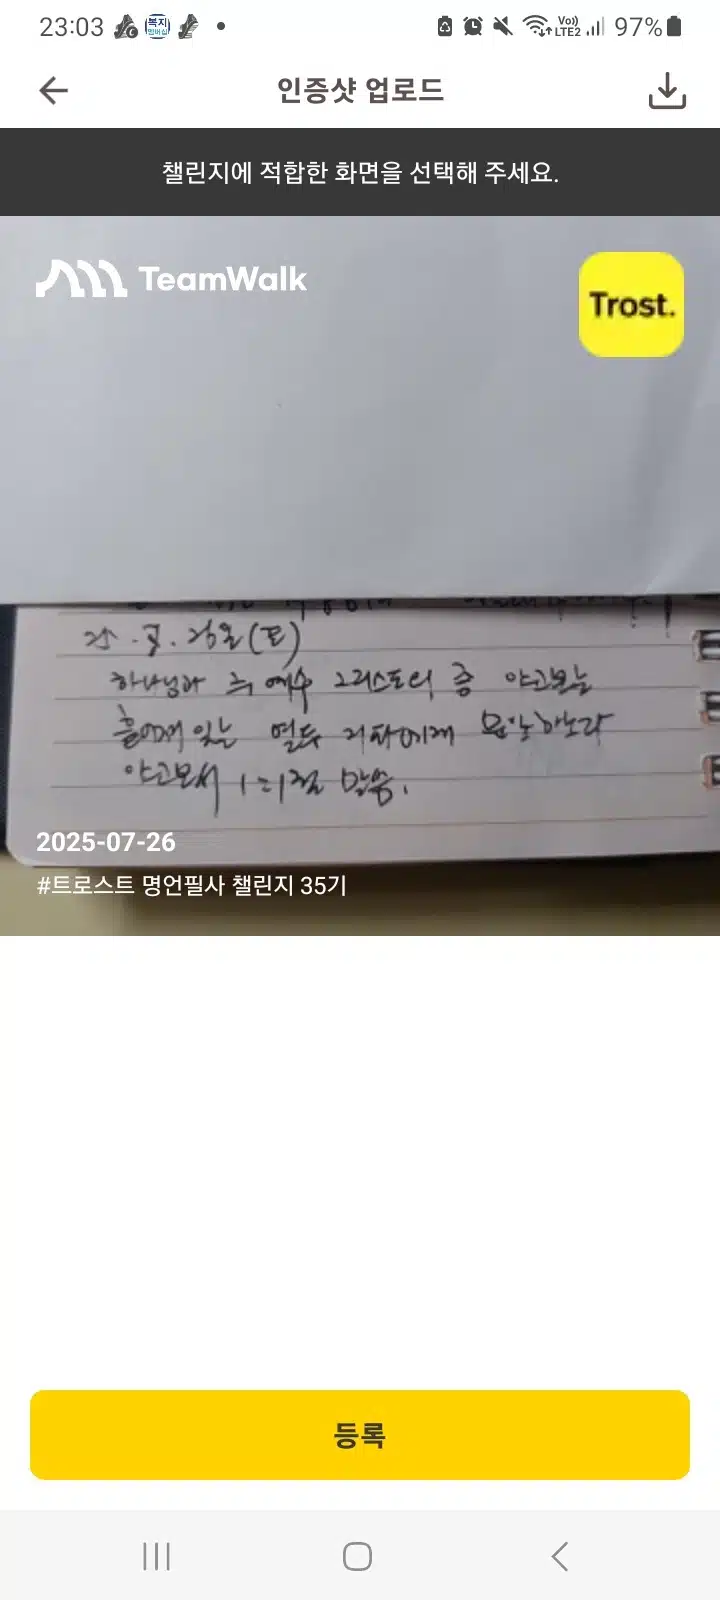 23:03
복지
멤버십
Vo))
LTE2
97%
인증샷 업로드
챌린지에 적합한 화면을 선택해 주세요.
TeamWalk
Trost.
25. 7. 26일(토)
하나님과 주 예수 그리스도의 종 야고보는
흩어져 있는 열두 지파에게 문안하노라
야고보서 1:1절 말씀.
2025-07-26
#트로스트 명언필사 챌린지 35기
등록